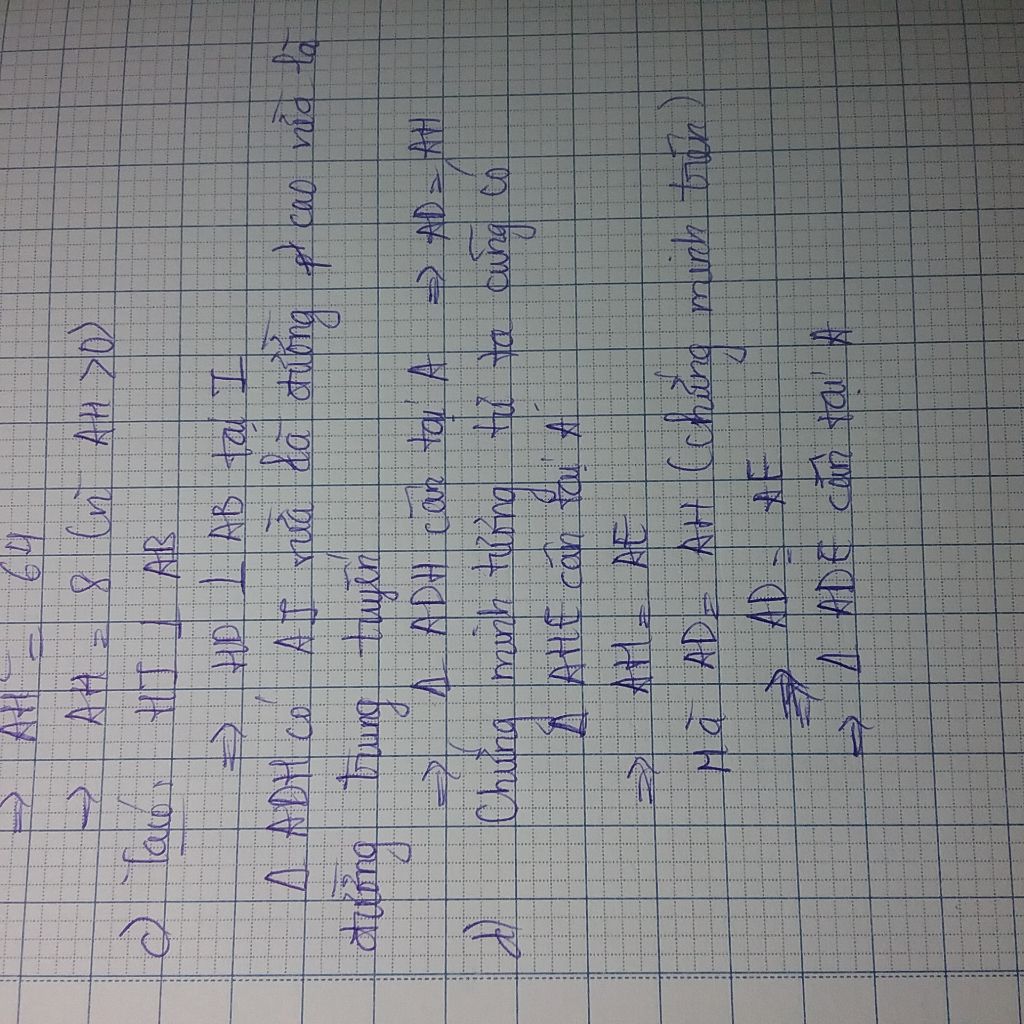 ⇒ AH² = 64
→ AH = 8 (vì AH > 0)
c) Ta có: HI ⊥ AB
⇒ HD ⊥ AB tại I
Δ ADH có AI vừa là đường cao vừa là
đường trung tuyến
⇒ Δ ADH cân tại A ⇒ AD = AH
d) Chứng minh tương tự ta cũng có
Δ AHE cân tại A
⇒ AH = AE
Mà AD = AH (chứng minh trên)
⇒ AD = AE
⇒ Δ ADE cân tại A